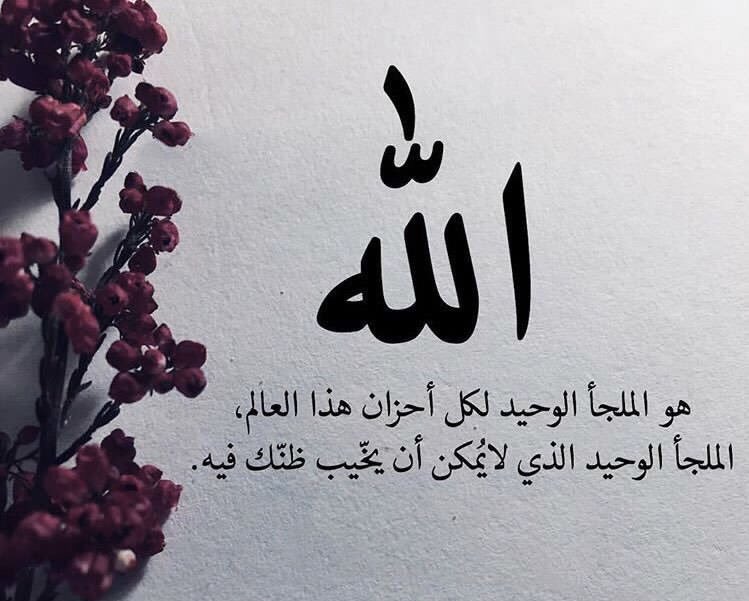 الله
هو الملجأ الوحيد لكل أحزان هذا العالم،
الملجأ الوحيد الذي لايُمكن أن يخّيب ظنّك فيه.